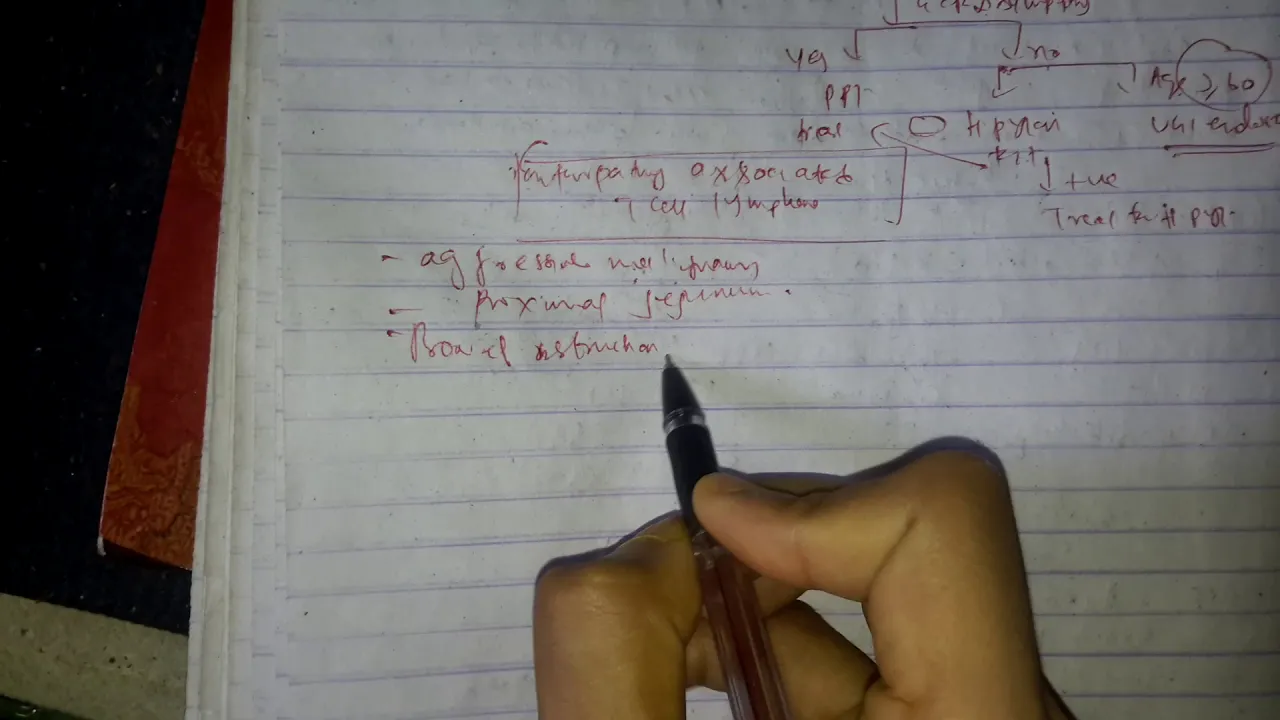 yes
no
PPI
Age ≥ 60
trial
H pylori
UGI endos
test
+ve
Treat for H pyl
Enteropathy associated
T cell lymphoma
- aggressive malignancy
- proximal jejunum.
- Bowel obstruction